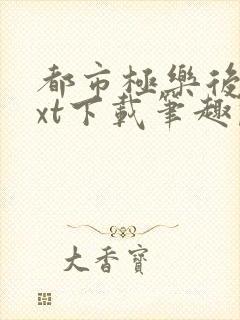 都市極樂後
xt下載筆趣
大香寶